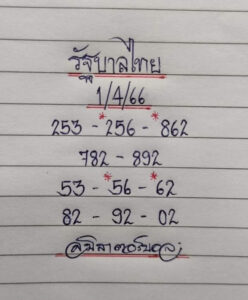 รัฐบาลไทย
1/4/66
253 - *256 - *862
782 - 892
53 - *56 - *62
82 - 92 - 02